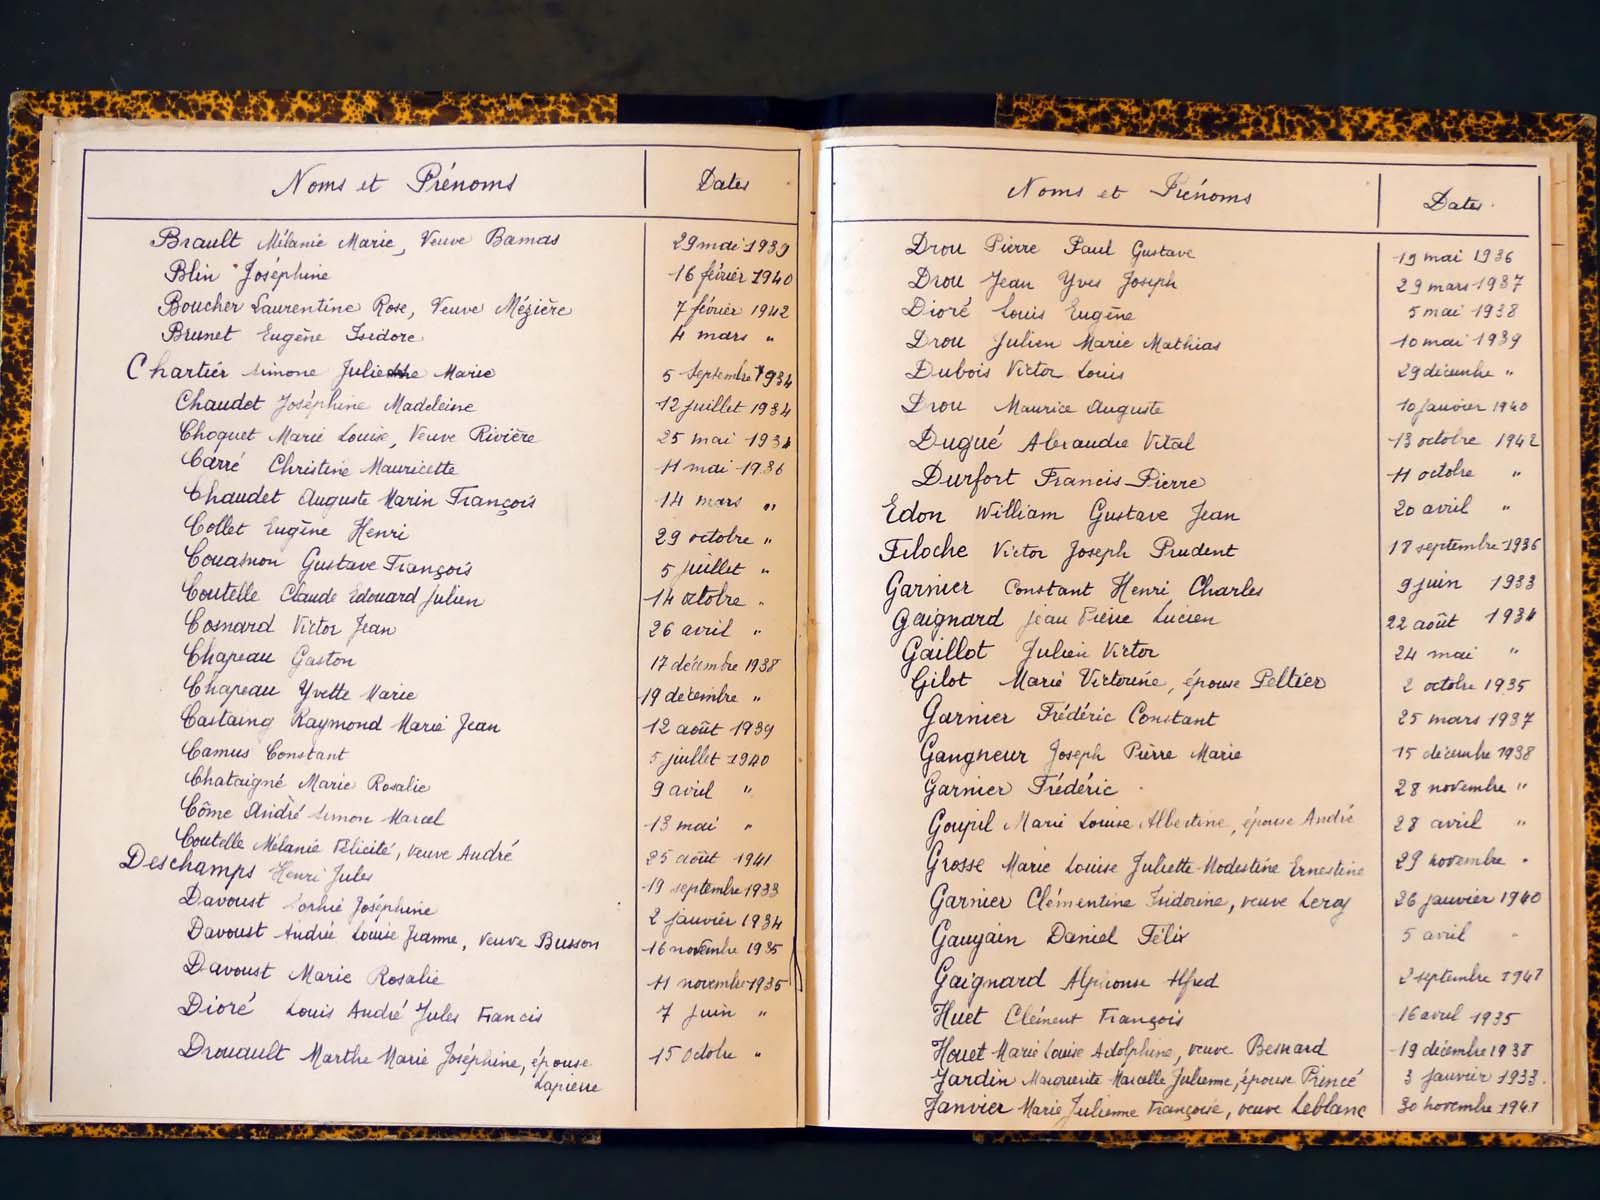 Noms et Prénoms Dates
Brault Mélanie Marie, Veuve Bamas 29 mai 1939
Blin Joséphine 16 février 1940
Boucher Laurentine Rose, Veuve Mézière 7 février 1942
Brunet Eugène Isidore 4 mars "
Chartier Simone Julie Marie 5 septembre 1934
Chaudet Joséphine Madeleine 12 juillet 1934
Choquet Marie Louise, Veuve Rivière 25 mai 1934
Carré Christine Mauricette 11 mai 1936
Chaudet Auguste Marin François 14 mars "
Collet Eugène Henri 29 octobre "
Couasnon Gustave François 5 juillet "
Coutelle Claude Edouard Julien 14 octobre "
Cosnard Victor Jean 26 avril "
Chapeau Gaston 17 décembre 1938
Chapeau Yvette Marie 19 décembre "
Castaing Raymond Marie Jean 12 août 1939
Camus Constant 5 juillet 1940
Chataigné Marie Rosalie 9 avril "
Côme André Simon Marcel 13 mai "
Coutelle Mélanie Félicité, veuve André 25 août 1941
Deschamps Henri Jules 19 septembre 1933
Davoust Sophie Joséphine 2 janvier 1934
Davoust Andrée Louise Jeanne, veuve Busson 16 novembre 1935
Davoust Marie Rosalie 11 novembre 1935
Dioré Louis André Jules Francis 7 juin "
Drouault Marthe Marie Joséphine, épouse 15 octobre "
Lapierre
Noms et Prénoms Dates
Drou Pierre Paul Gustave 19 mai 1936
Drou Jean Yves Joseph 29 mars 1937
Dioré Louis Eugène 5 mai 1938
Drou Julien Marie Mathias 10 mai 1939
Dubois Victor Louis 29 décembre "
Drou Maurice Auguste 10 janvier 1940
Dugué Alexandre Vital 13 octobre 1942
Durfort Francis-Pierre 11 octobre "
Edon William Gustave Jean 20 avril "
Filoche Victor Joseph Prudent 18 septembre 1936
Garnier Constant Henri Charles 9 juin 1933
Gaignard Jean Pierre Lucien 22 août 1934
Gaillot Julien Victor 24 mai "
Gilot Marie Victorine, épouse Peltier 2 octobre 1935
Garnier Frédéric Constant 25 mars 1937
Gangneur Joseph Pierre Marie 15 décembre 1938
Garnier Frédéric 28 novembre "
Goupil Marie Louise Albertine, épouse André 28 avril "
Grosse Marie Louise Juliette Modestine Ernestine 29 novembre "
Garnier Clémentine Isidorine, veuve Leroy 26 janvier 1940
Gaugain Daniel Félix 5 avril "
Gaignard Alphonse Alfred 2 septembre 1941
Huet Clément François 16 avril 1935
Houet Marie Louise Adolphine, veuve Besnard 19 décembre 1938
Jardin Marguerite Marcelle Julienne, épouse Princé 3 janvier 1933.
Janvier Marie Julienne Françoise, veuve Leblanc 30 novembre 1941